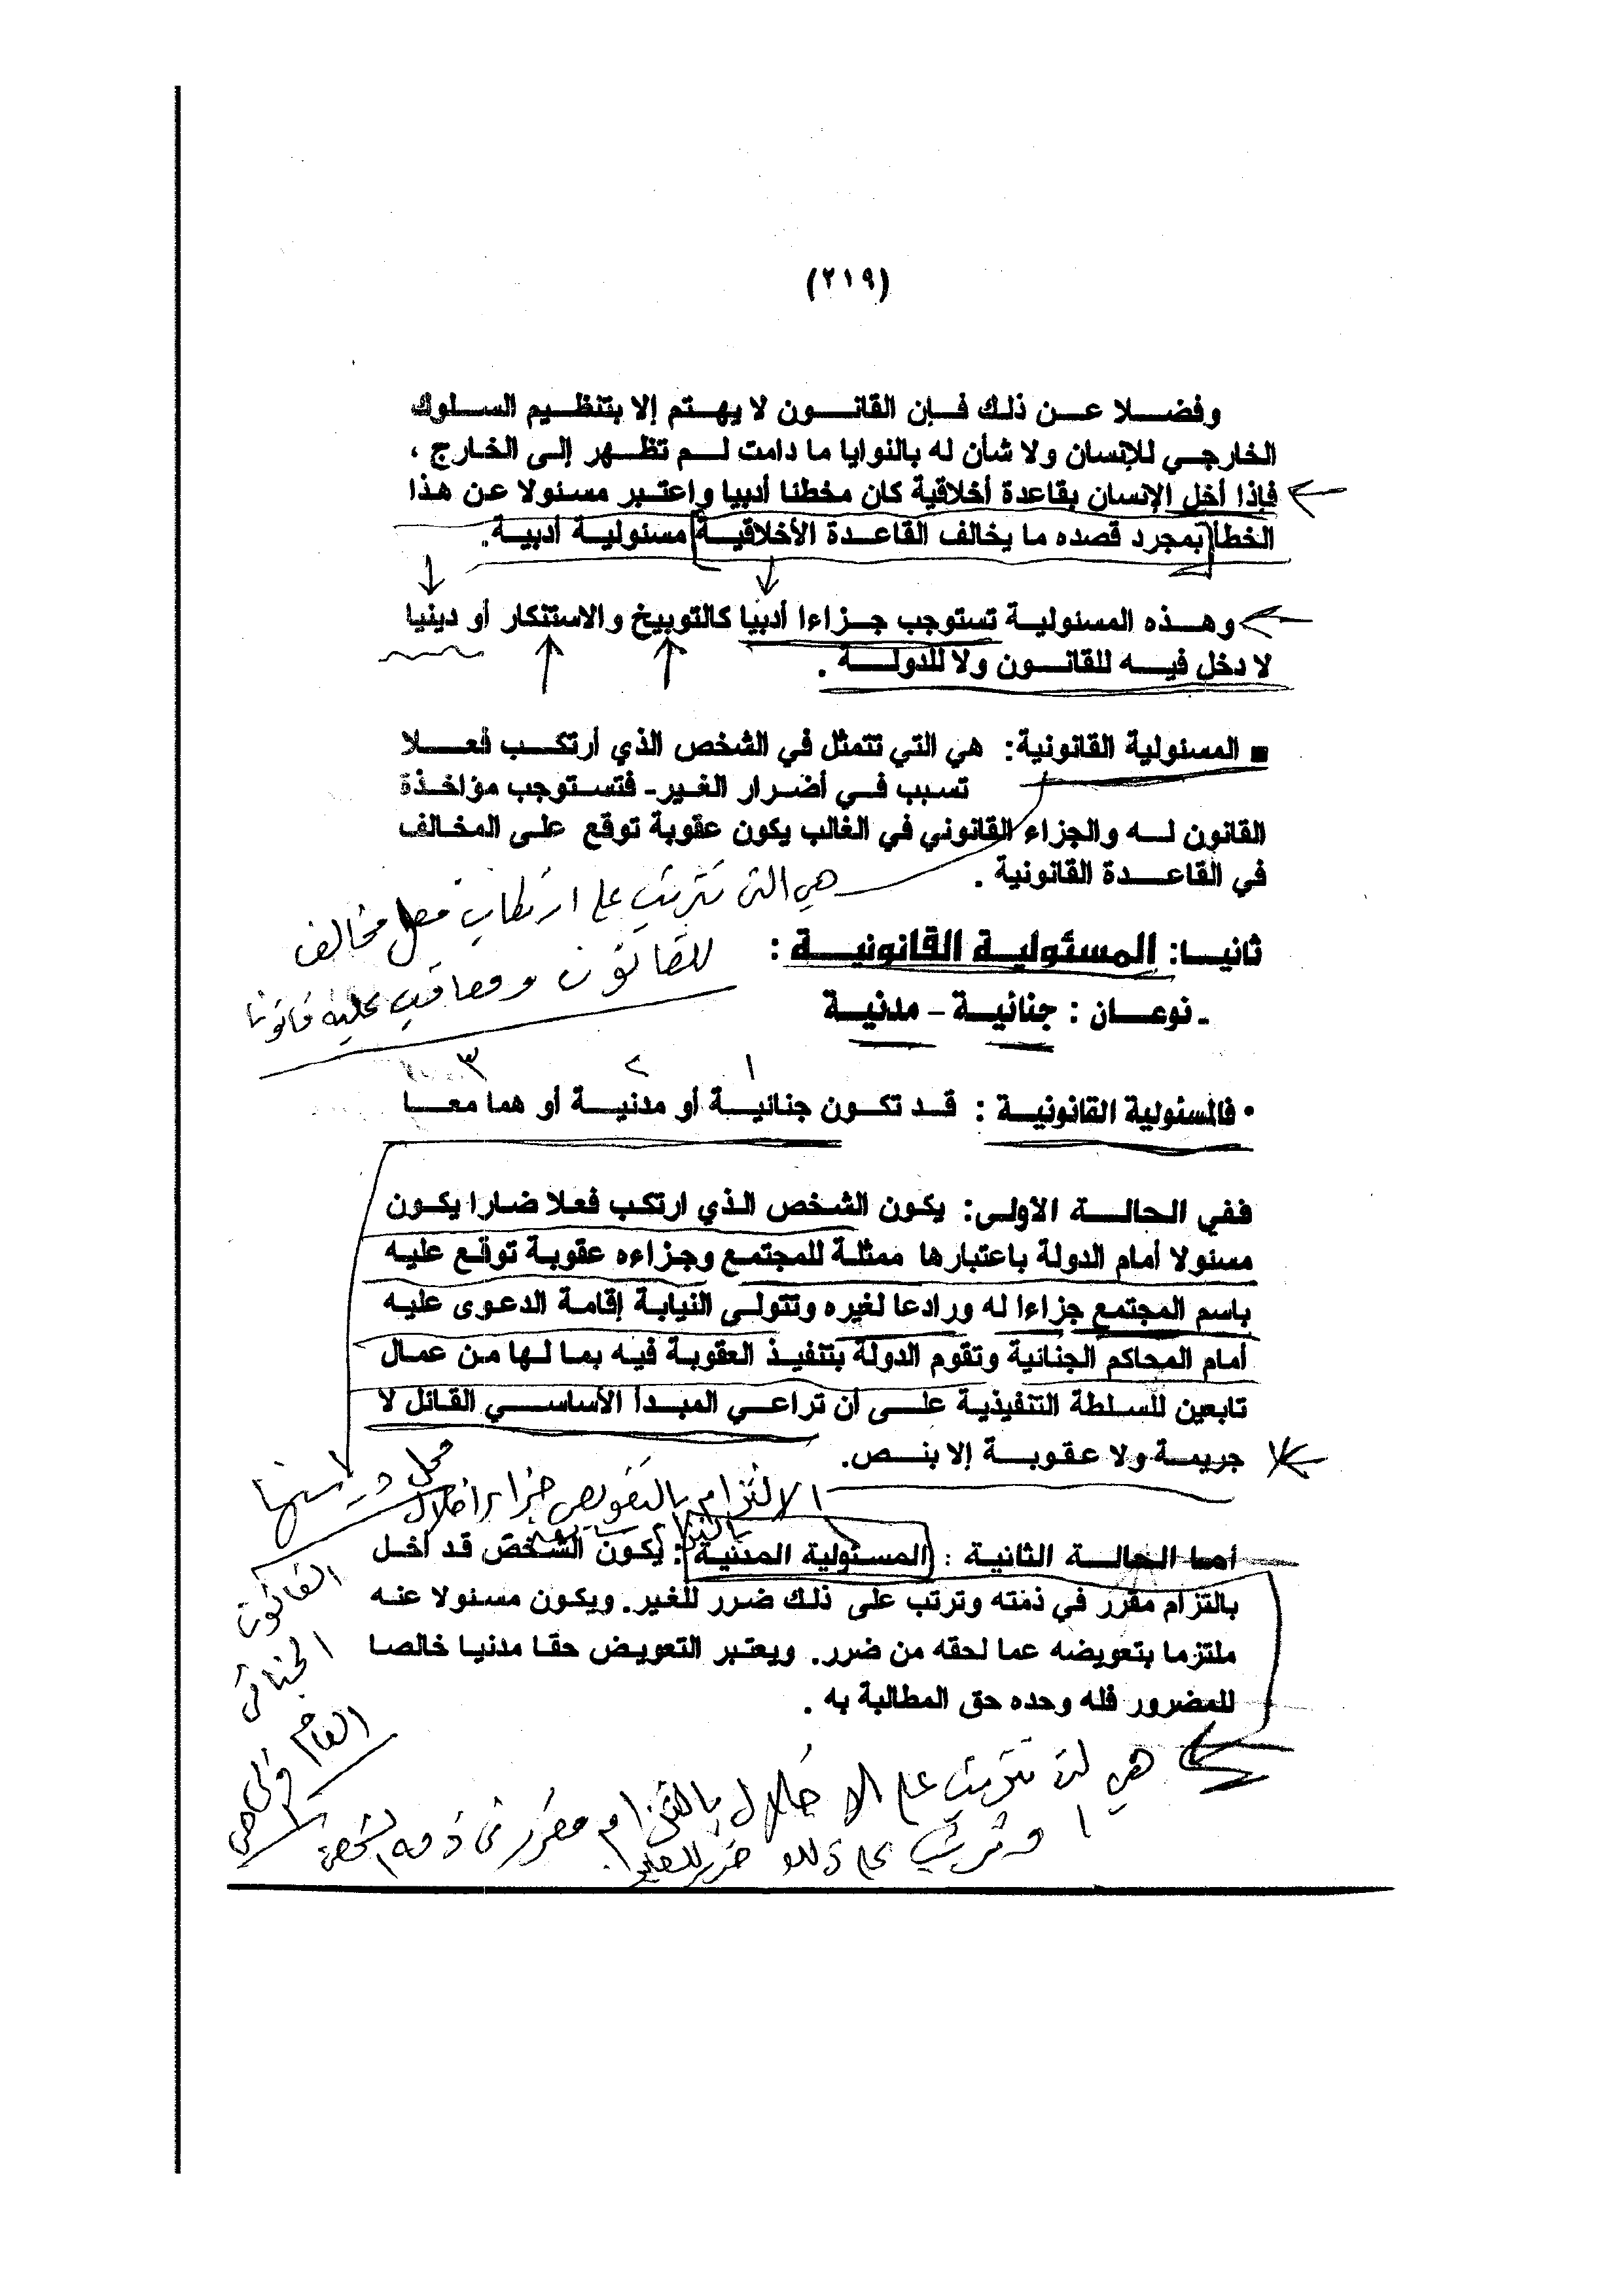 (٢١٩)
وفضلا عن ذلك فإن القانون لا يهتم إلا بتنظيم السلوك
الخارجي للإنسان ولا شأن له بالنوايا ما دامت لم تظهر إلى الخارج ،
فإذا أخل الإنسان بقاعدة أخلاقية كان مخطئا أدبيا واعتبر مسئولا عن هذا
الخطأ بمجرد قصده ما يخالف القاعدة الأخلاقية مسئولية أدبية.
وهذه المسئولية تستوجب جزاءا أدبيا كالتوبيخ والاستنكار أو دينيا
لا دخل فيه للقانون ولا للدولة .
■ المسئولية القانونية: هي التي تتمثل في الشخص الذي أرتكب فعلا
تسبب في أضرار الغير- فتستوجب مؤاخذة
القانون له والجزاء القانوني في الغالب يكون عقوبة توقع على المخالف
في القاعدة القانونية .
هي التى تترتب على ارتكاب فعل مخالف
للقانون ومعاقب عليه قانونا
ثانيا: المسئولية القانونية :
- نوعان : جنائية - مدنية
١ ٢ ٣
• فالمسئولية القانونية : قد تكون جنائية أو مدنية أو هما معا
ففي الحالة الأولى: يكون الشخص الذي ارتكب فعلا ضارا يكون
مسئولا أمام الدولة باعتبارها ممثلة للمجتمع وجزاءه عقوبة توقع عليه
باسم المجتمع جزاءا له ورادعا لغيره وتتولى النيابة إقامة الدعوى عليه
أمام المحاكم الجنائية وتقوم الدولة بتنفيذ العقوبة فيه بما لها من عمال
تابعين للسلطة التنفيذية على أن تراعي المبدأ الأساسي القائل لا
جريمة ولا عقوبة إلا بنص.
محل دراستها
القانون
الجنائى
العام والخاص
الالتزام بالتعويض جزاء اخلال
بالتزام
أما الحالة الثانية : المسئولية المدنية : يكون الشخص قد أخل
بالتزام مقرر في ذمته وترتب على ذلك ضرر للغير. ويكون مسئولا عنه
ملتزما بتعويضه عما لحقه من ضرر. ويعتبر التعويض حقا مدنيا خالصا
للمضرور فله وحده حق المطالبة به .
هي التى تترتب على الاخلال بالتزام مقرر فى ذمه الشخص
وترتب على ذلك ضرر للغير